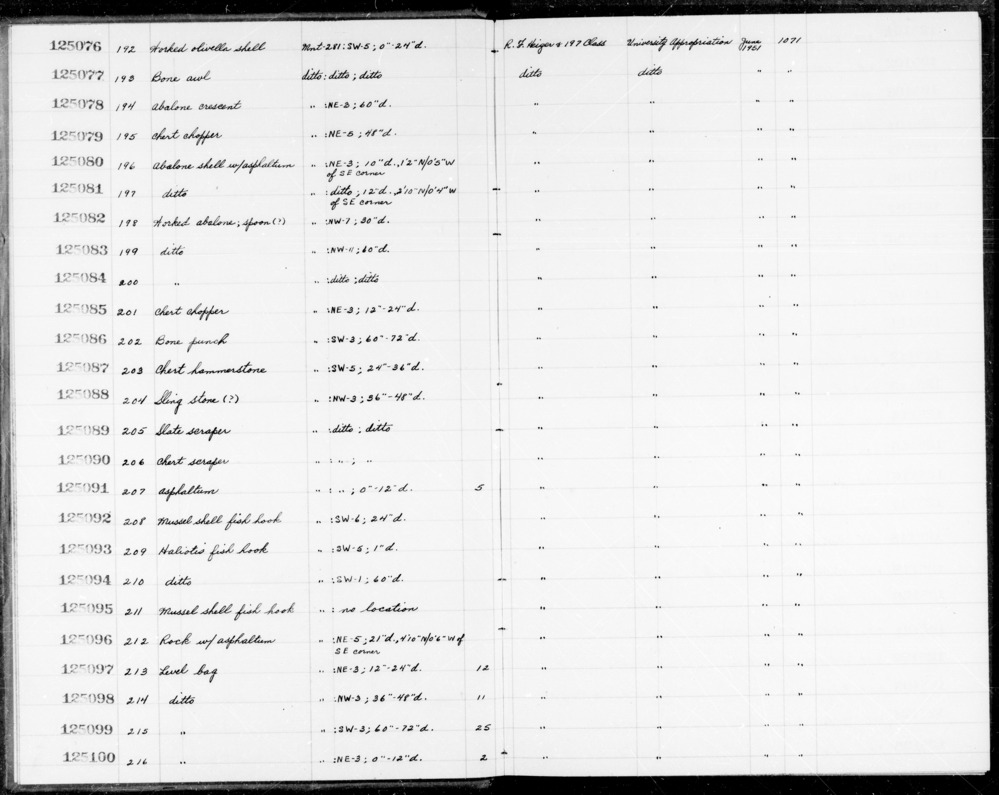 125076 192 Worked olivella shell Mnt-281:SW-5; 0"-24"d. R. F. Heizer & 197 Class University Appropriation June 1951 1071
125077 193 Bone awl ditto: ditto; ditto ditto ditto " "
125078 194 Abalone crescent " :NE-3; 60"d. " " " "
125079 195 Chert chopper " :NE-5; 48"d. " " " "
125080 196 Abalone shell w/asphaltum " :NE-3; 10"d., 1'2"N/0'5"W " " " "
of SE corner
125081 197 ditto " : ditto; 12"d., 2'10"N/0'4"W " " " "
of SE corner
125082 198 Worked abalone; spoon(?) " :NW-7; 30"d. " " " "
125083 199 ditto " :NW-11; 60"d. " " " "
125084 200 " " :ditto; ditto " " " "
125085 201 Chert chopper " :NE-3; 12"-24"d. " " " "
125086 202 Bone punch " :SW-3; 60"-72"d. " " " "
125087 203 Chert hammerstone " :SW-5; 24"-36"d. " " " "
125088 204 Sling stone (?) " :NW-3; 36"-48"d. " " " "
125089 205 Slate scraper " :ditto; ditto " " " "
125090 206 Chert scraper " : " ; " " " " "
125091 207 Asphaltum " : " ; 0"-12"d. 5 " " " "
125092 208 Mussel shell fish hook " :SW-6; 24"d. " " " "
125093 209 Haliotis fish hook " :SW-5; 1"d. " " " "
125094 210 ditto " :SW-1; 60"d. " " " "
125095 211 Mussel shell fish hook " : no location " " " "
125096 212 Rock w/ asphaltum " :NE-5; 21"d., 4'10"N/0'6"W of " " " "
SE corner
125097 213 Level bag " :NE-3; 12"-24"d. 12 " " " "
125098 214 ditto " :NW-3; 36"-48"d. 11 " " " "
125099 215 " " :SW-3; 60"-72"d. 25 " " " "
125100 216 " " :NE-3; 0"-12"d. 2 " " " "